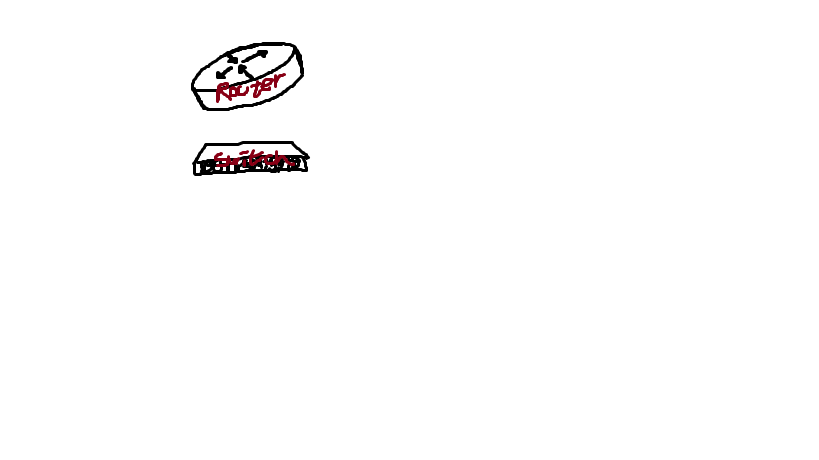 Router
Switch